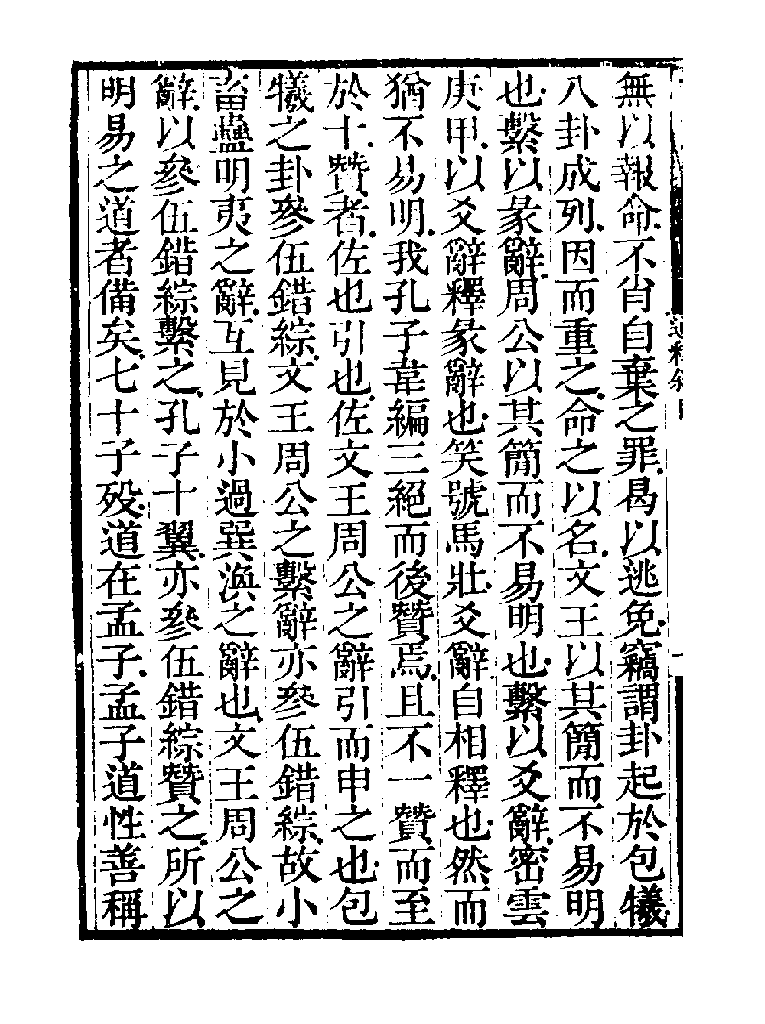 無以報命不肖自棄之罪曷以逃免竊謂卦起於包犧
八卦成列因而重之命之以名文王以其簡而不易明
也繫以彖辭周公以其簡而不易明也繫以爻辭密雲
庚甲以爻辭釋彖辭也笑號馬壯爻辭自相釋也然而
猶不易明我孔子韋編三絕而後贊焉且不一贊而至
於十贊者佐也引也佐文王周公之辭引而申之也包
犧之卦參伍錯綜文王周公之繫辭亦參伍錯綜故小
畜蠱明夷之辭互見於小過巽渙之辭也文王周公之
辭以參伍錯綜繫之孔子十翼亦參伍錯綜贊之所以
明易之道者備矣七十子歿道在孟子孟子道性善稱